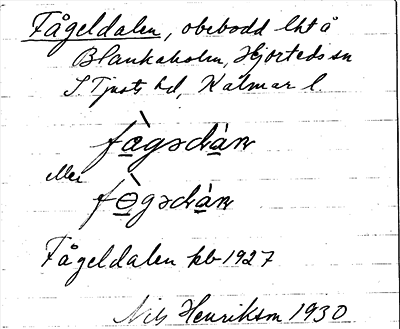 Fågeldalen, obebodd lht å
Blankaholm, Hjorteds sn
S Tjusts hd, Kalmar l.
fàgədàɴ
eller
fògədàɴ
Fågeldalen kb 1927
Nils Henrikson 1930